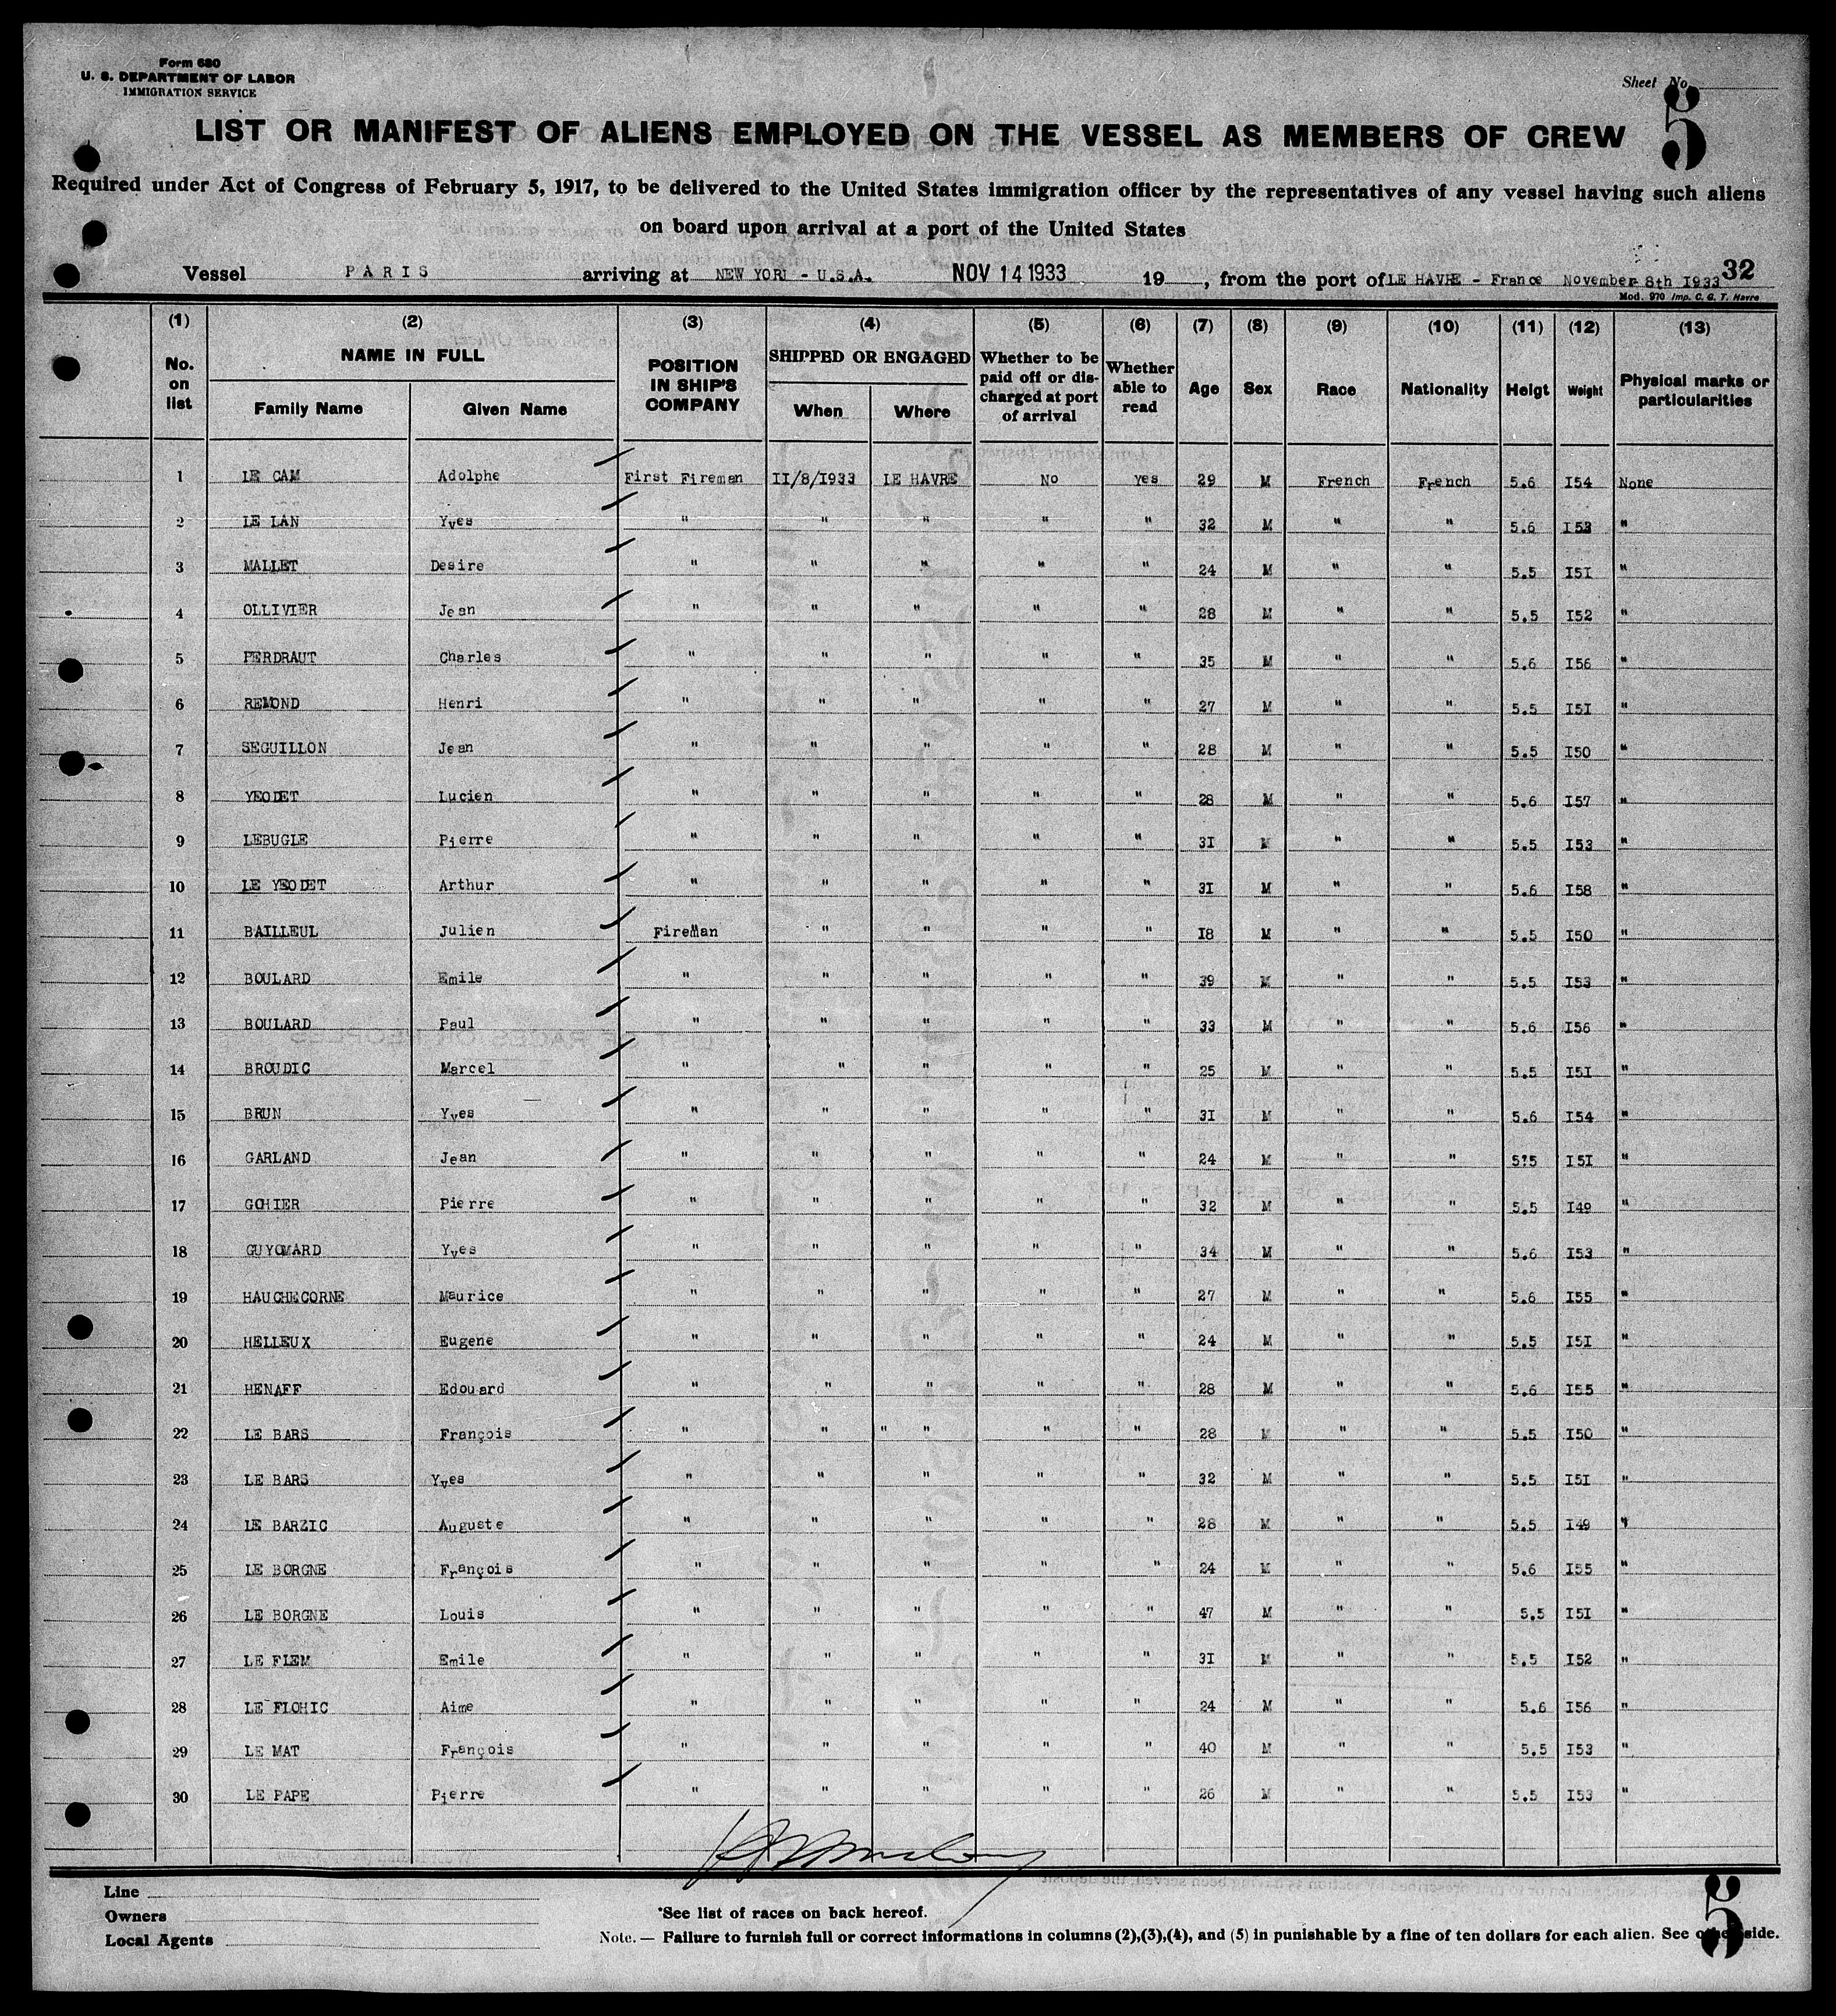 Form 680
U. S. DEPARTMENT OF LABOR
IMMIGRATION SERVICE
Sheet No.
5
LIST OR MANIFEST OF ALIENS EMPLOYED ON THE VESSEL AS MEMBERS OF CREW
Required under Act of Congress of February 5, 1917, to be delivered to the United States immigration officer by the representatives of any vessel having such aliens
on board upon arrival at a port of the United States
Vessel PARIS arriving at NEW YORK - U.S.A. NOV 14 1933 19 , from the port of LE HAVRE - France November 8th I933 32
Mod. 970 Imp. C. G. T. Havre
(1) (2) (3) (4) (5) (6) (7) (8) (9) (10) (11) (12) (13)
No. on list NAME IN FULL Family Name Given Name POSITION IN SHIP'S COMPANY SHIPPED OR ENGAGED When Where Whether to be paid off or discharged at port of arrival Whether able to read Age Sex Race Nationality Heigt Weight Physical marks or particularities
1 LE CAM Adolphe First Fireman II/8/I933 LE HAVRE No yes 29 M French French 5.6 I54 None
2 LE LAN Yves " " " " " 32 M " " 5.6 I53 "
3 MALLET Desire " " " " " 24 M " " 5.5 I5I "
4 OLLIVIER Jean " " " " " 28 M " " 5.5 I52 "
5 PERDRAUT Charles " " " " " 35 M " " 5.6 I56 "
6 REMOND Henri " " " " " 27 M " " 5.5 I5I "
7 SEGUILLON Jean " " " " " 28 M " " 5.5 I50 "
8 YEODET Lucien " " " " " 28 M " " 5.6 I57 "
9 LEBUGLE Pierre " " " " " 3I M " " 5.5 I53 "
10 LE YEODET Arthur " " " " " 3I M " " 5.6 I58 "
11 BAILLEUL Julien FireMan " " " " I8 M " " 5.5 I50 "
12 BOULARD Emile " " " " " 39 M " " 5.5 I53 "
13 BOULARD Paul " " " " " 33 M " " 5.6 I56 "
14 BROUDIC Marcel " " " " " 25 M " " 5.5 I5I "
15 BRUN Yves " " " " " 3I M " " 5.6 I54 "
16 GARLAND Jean " " " " " 24 M " " 5?5 I5I "
17 GOHIER Pierre " " " " " 32 M " " 5.5 I49 "
18 GUYOMARD Yves " " " " " 34 M " " 5.6 I53 "
19 HAUCHECORNE Maurice " " " " " 27 M " " 5.6 I55 "
20 HELLEUX Eugene " " " " " 24 M " " 5.5 I5I "
21 HENAFF Edouard " " " " " 28 M " " 5.6 I55 "
22 LE BARS François " " " " " " 28 M " " 5.5 I50 "
23 LE BARS Yves " " " " " 32 M " " 5.5 I5I "
24 LE BARZIC Auguste " " " " " 28 M " " 5.5 I49 "
25 LE BORGNE François " " " " " 24 M " " 5.6 I55 "
26 LE BORGNE Louis " " " " " 47 M " " 5.5 I5I "
27 LE FLEM Emile " " " " " 3I M " " 5.5 I52 "
28 LE FLOHIC Aime " " " " " 24 M " " 5.6 I56 "
29 LE MAT François " " " " " 40 M " " 5.5 I53 "
30 LE PAPE Pierre " " " " " 26 M " " 5.5 I53 "
Line
Owners
Local Agents
*See list of races on back hereof.
Note. — Failure to furnish full or correct informations in columns (2),(3),(4), and (5) in punishable by a fine of ten dollars for each alien. See other side.
5